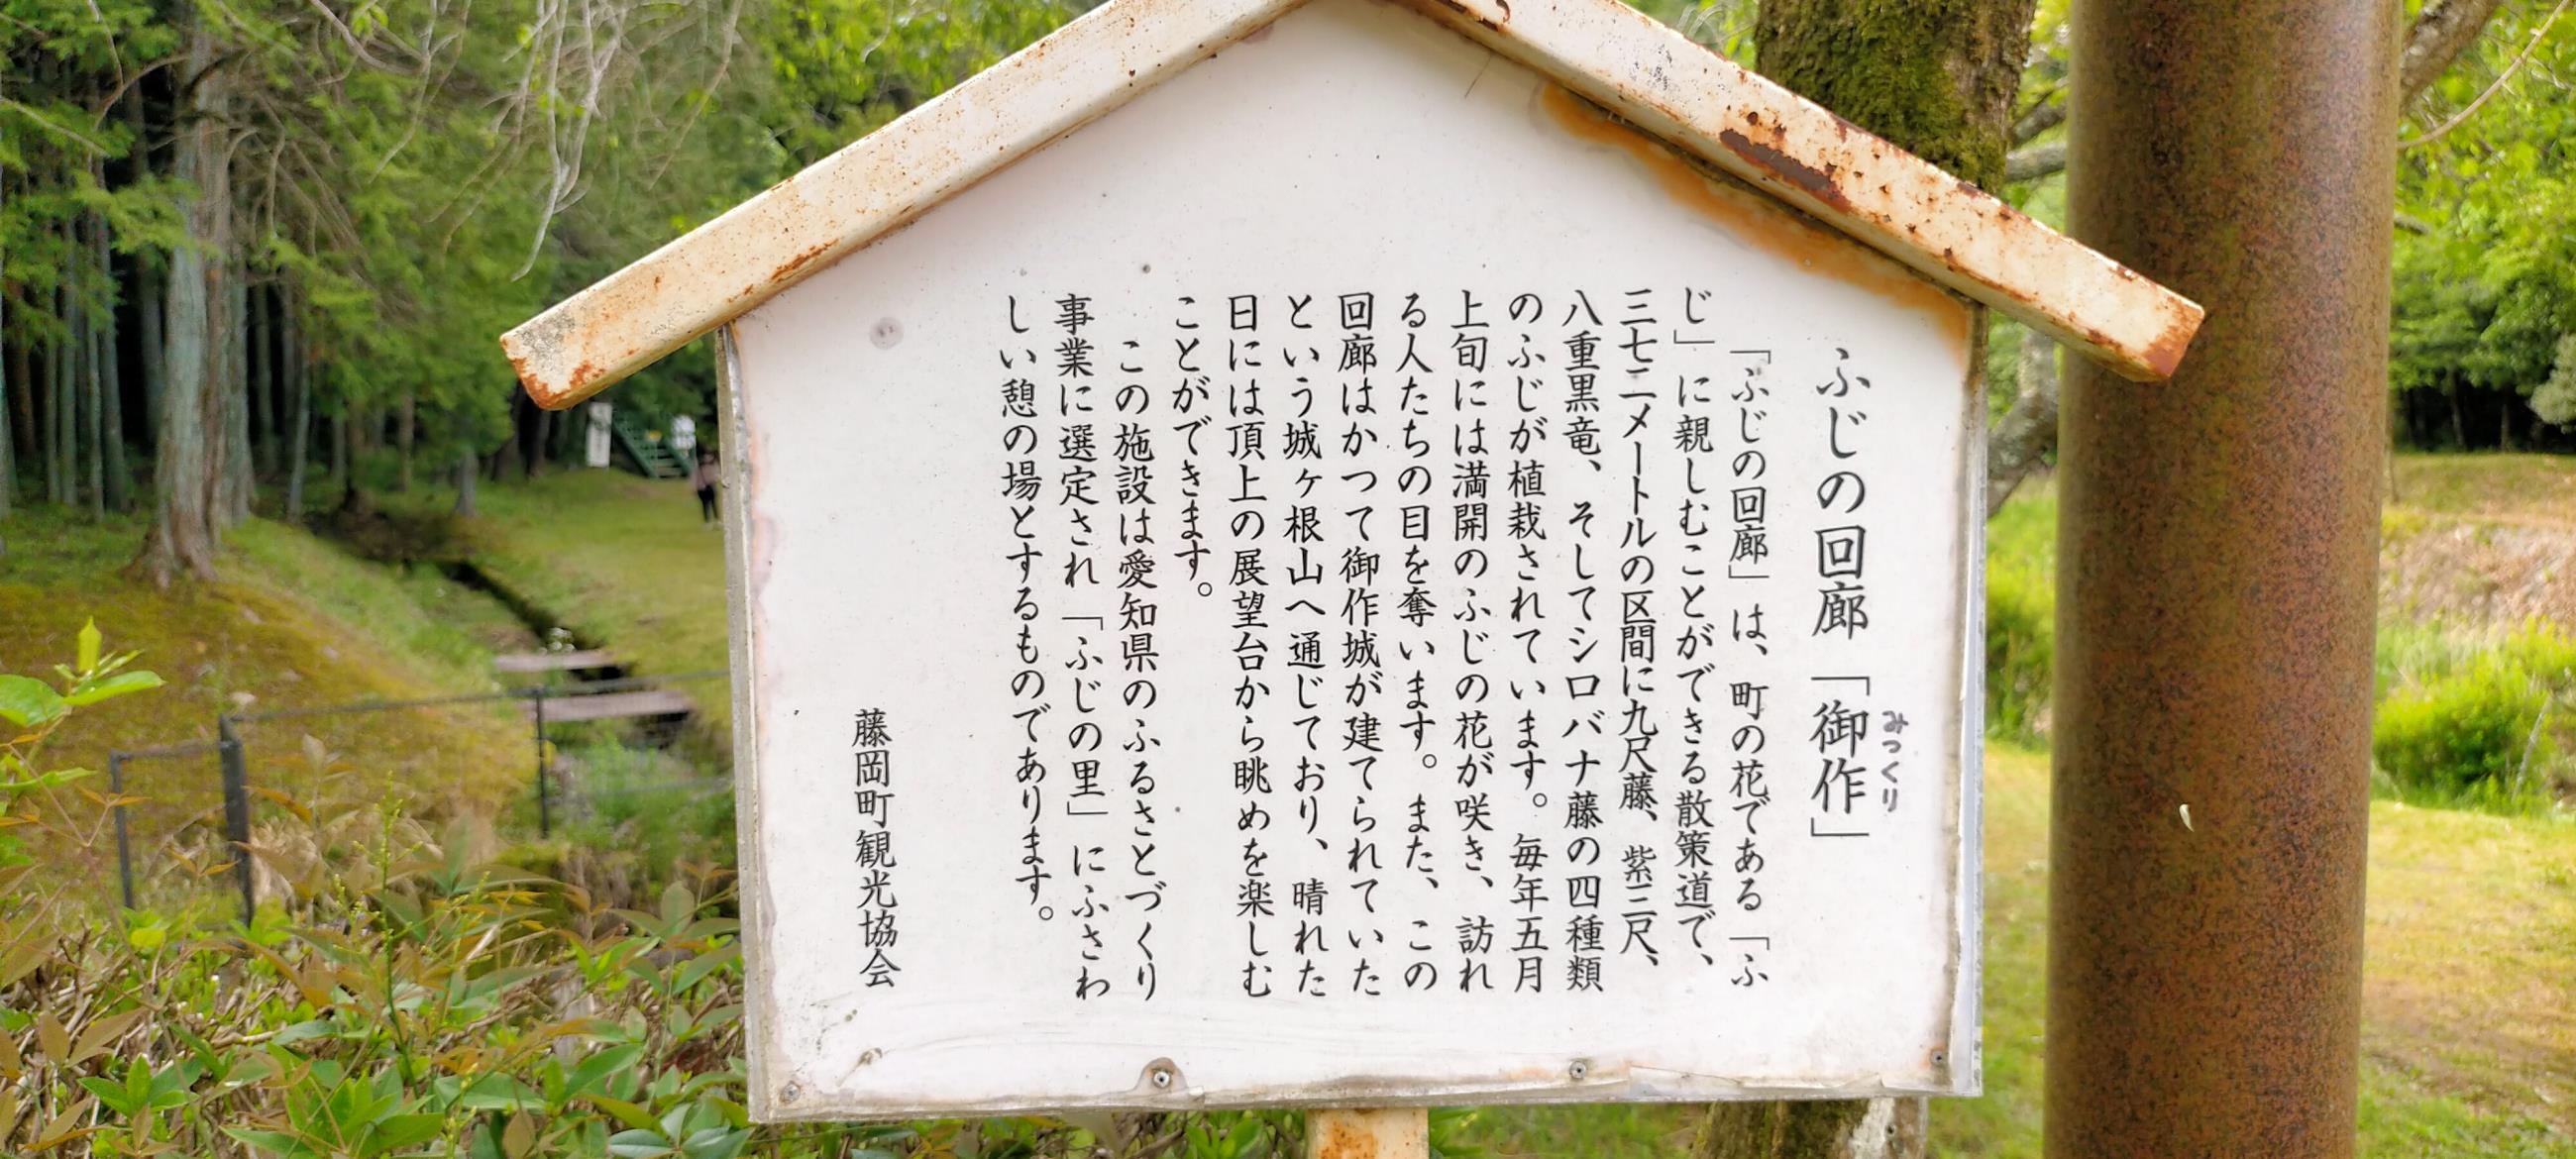 ふじの回廊「御作」
みつくり
「ふじの回廊」は、町の花である「ふ
じ」に親しむことができる散策道で、
三七二メートルの区間に九尺藤、紫三尺、
八重黒竜、そしてシロバナ藤の四種類
のふじが植栽されています。毎年五月
上旬には満開のふじの花が咲き、訪れ
る人たちの目を奪います。また、この
回廊はかつて御作城が建てられていた
という城ヶ根山へ通じており、晴れた
日には頂上の展望台から眺めを楽しむ
ことができます。
この施設は愛知県のふるさとづくり
事業に選定され「ふじの里」にふさわ
しい憩の場とするものであります。
藤岡町観光協会